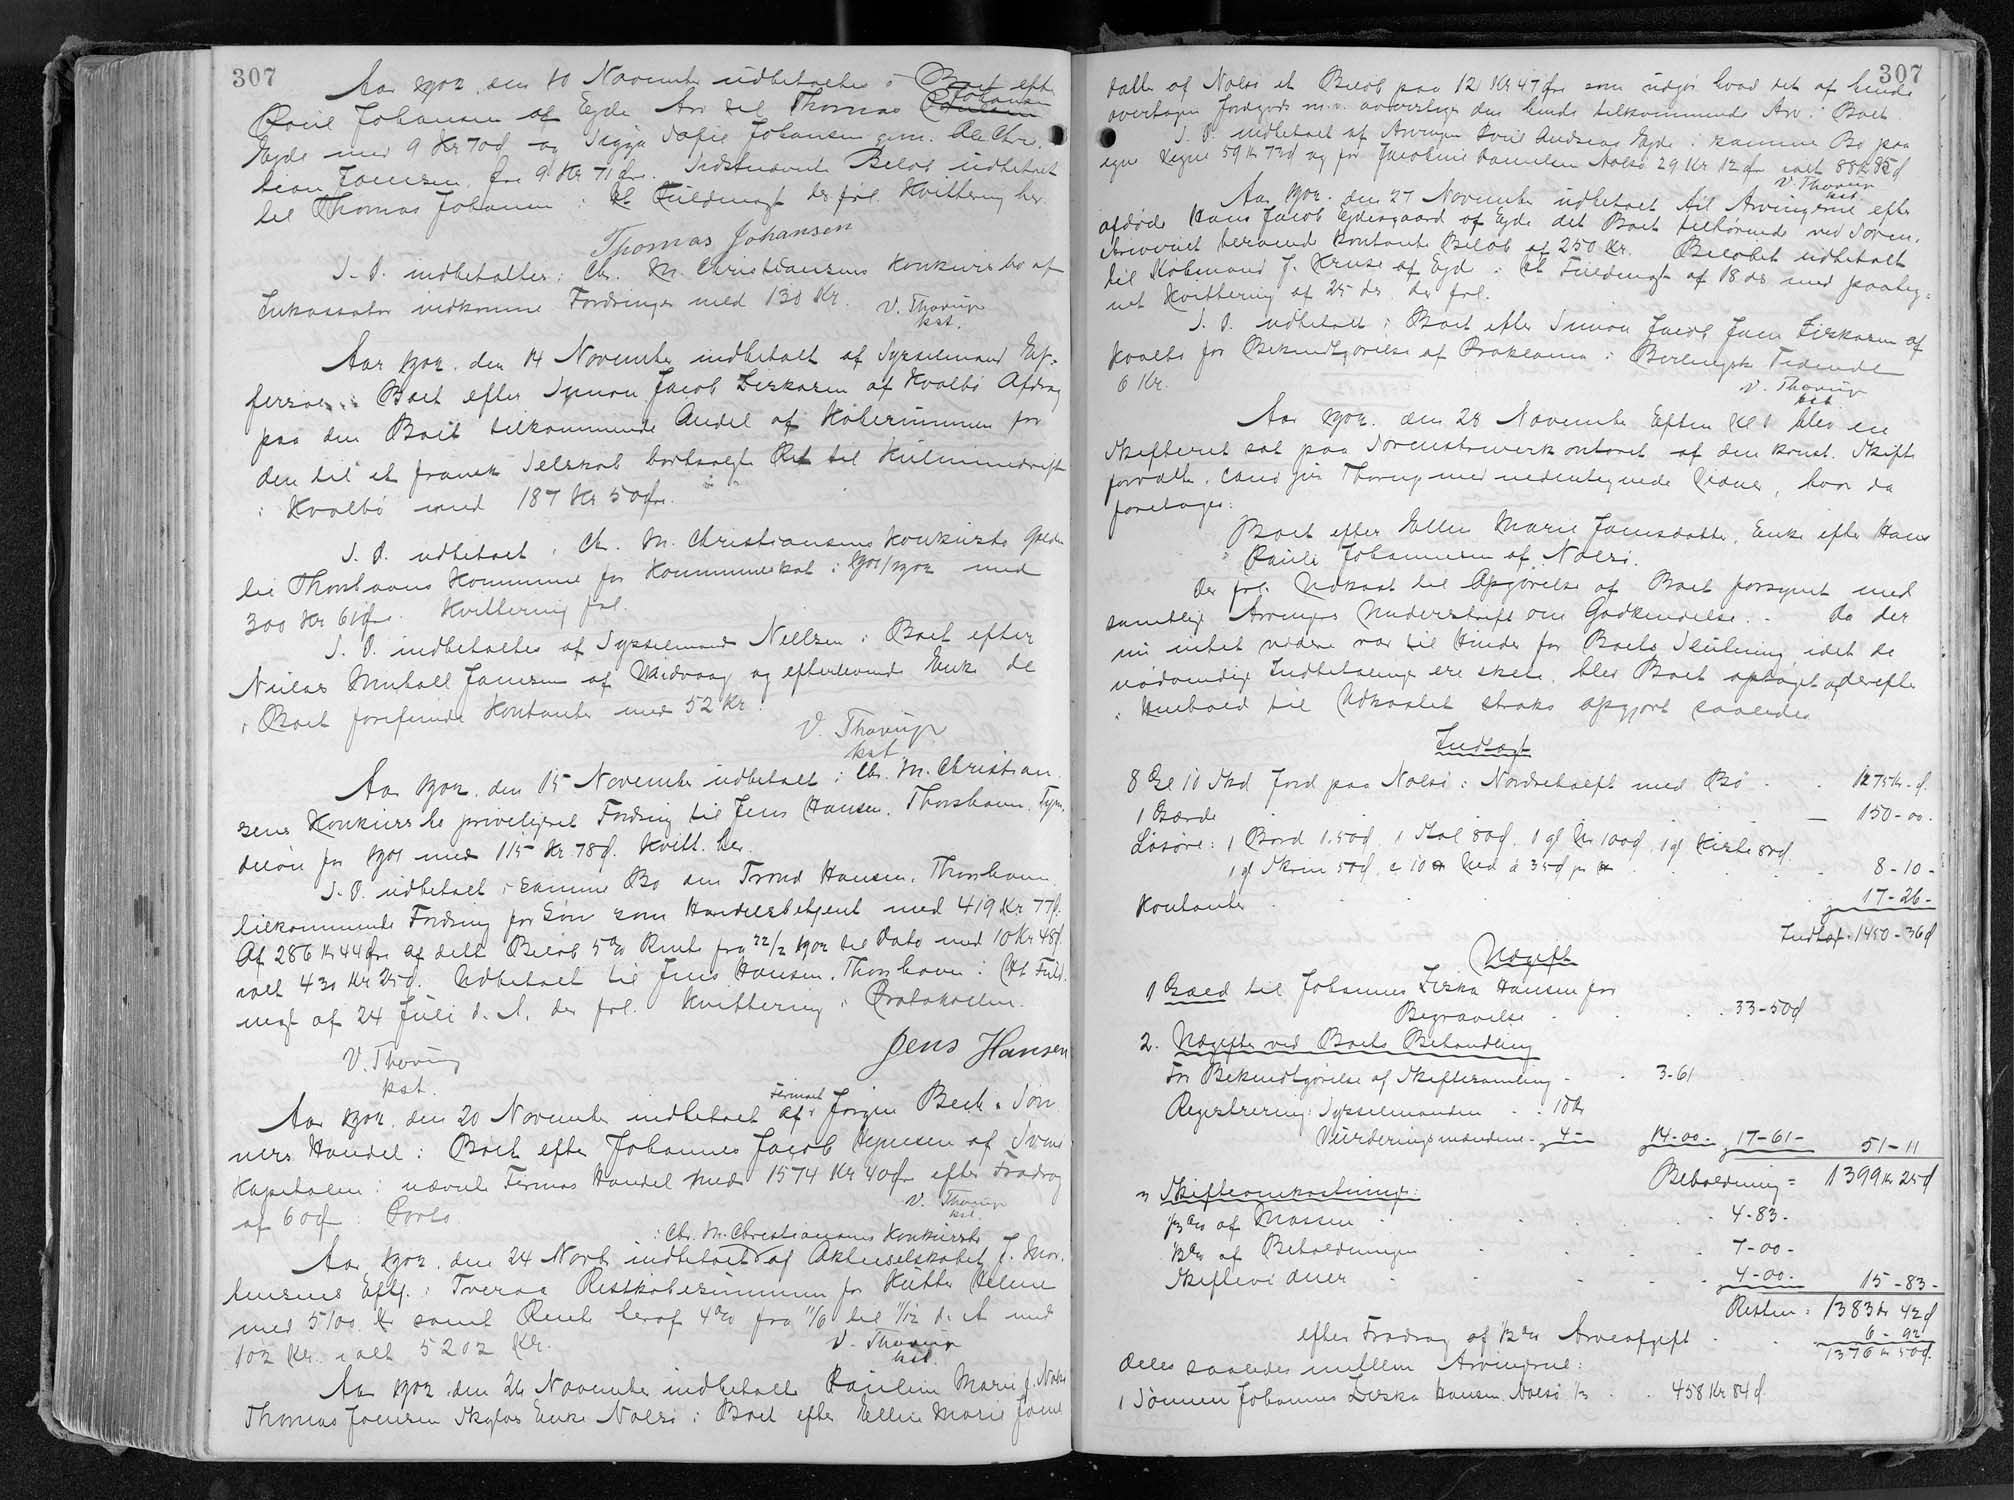 307
Aar 1902 den 10 November udbetaltes i Boet efter
Poul Johansen af Ejde Arv til Thomas Johansen
Ejde med 9 Kr 70 Ø og Sigga Sofie Johansen gm. Chri-
stian Joensen, fra 9 Kr 71 Øre. Sidstnævnte Beløb udbetalt
til Thomas Johansen i Hl Fuldmagt der frl. Kvittering her.
Thomas Johansen
S. D. indbetaltes i Chr. M. Christiansens Konkursbo af
Inkassator indkomne Fordringer med 130 Kr.
V. Thorup
kst.
Aar 1902 den 14 November indbetalt af Sysselmand
i Boet efter Simon Jacob Liskesen af Kvalbø Afdrag
paa den Boet tilkommende Andel af Købesummen for
den til et fransk Selskab bortsolgte Ret til Kulminedrift
i Kvalbø med 187 Kr 50 Øre.
S. D. udbetalt i Chr. M. Christiansens Konkursbo Gælden
til Thorshavns Kommune for Kommuneskat i 1901/1902 med
300 Kr 61 Øre. Kvittering frl.
S. D. indbetaltes af Sysselmand Nielsen i Boet efter
Niclas Mikall Joensen af Midvaag og efterlevende Enke de
i Boet forefundne Kontanter med 52 Kr.
V. Thorup
kst.
Aar 1902 den 15 November udbetalt i Chr. M. Christian-
sens Konkursbo priviligeret Fordring til Jens Hansen, Thorshavn, Tyen-
deløn for 1901 med 115 Kr 78 Ø. Kvitt. her.
S. D. udbetalt i samme Bo den Trond Hansen, Thorshavn
tilkommende Fordring for Løn som Handelsbetjent med 419 Kr 77 Ø.
Af 286 Kr 44 Øre af dette Beløb 5% Rente fra 22/2 1902 til Dato med 10 Kr 48 Ø
ialt 430 Kr 25 Ø. Udbetalt til Jens Hansen, Thorshavn i Hl Fuld-
magt af 24 Juli d. A. der frl. Kvittering i Protokollen.
Jens Hansen
V. Thorup
kst.
Aar 1902 den 20 November indbetalt af Firmaet Jørgen Bech & Søn-
ners Handel i Boet efter Johannes Jacob af
Kapitalen i nævnte Firmas Handel med 1574 Kr 40 Øre efter Fradrag
af 60 Ø i Porto.
V. Thorup
kst.
i Chr. M. Christiansens Konkursbo
Aar 1902 den 24 Novb. indbetalt af Aktieselskabet J. Mor-
tensens Eftf. i Tveraa Restkøbesummen for Kutter Helene
med 5100 Kr samt Rente heraf 4% fra 11/6 til 11/12 d. A med
102 Kr. ialt 5202 Kr.
V. Thorup
kst.
Aar 1902 den 26 November indbetalt Pauline Marie f.
Thomas Joensen Enke Nolsø i Boet efter Ellen Marie Joens-
307
datter af Nolsø et Beløb paa 12 Kr 47 Øre som udgør hvad det af hende
overtagne Jordgods m.v. overstiger den hende tilkommende Arv i Boet.
S. D. indbetalt af Arvingen Poul Andreas Ejde i samme Bo paa
egne Vegne 59 Kr 73 Ø og for Jacobine Danielsen Nolsø 29 Kr 12 Øre ialt 88 Kr 85 Ø
V. Thorup
kst.
Aar 1902 den 27 November udbetalt til Arvingerne efter
afdøde Hans Jacob Ejdesgaard af Ejde det Boet tilhørende ved Soren-
skriveriet beroende Kontante Beløb af 250 Kr. Beløbet udbetalt
til Købmand J. Kruse af Ejde i Hl Fuldmagt af 18 ds med paateg-
net Kvittering af 25 ds. der frl.
S. D. udbetalt i Boet efter Simon Jacob Joen Liskesen af
Kvalbø for Bekendtgørelse af Proklama i Berlingske Tidende
6 Kr.
V. Thorup
kst
Aar 1902 den 28 November Efterm Kl 1 blev en
Skifteret sat paa Sorenskriverkontoret af den konst. Skifte-
forvalter, cand. jur. Thorup med nedentegnede Vidner, hvor da
foretoges:
Boet efter Ellen Marie Joensdatter, Enke efter Hans
Pauli Johannesen af Nolsø.
Der frl. Udkast til Opgørelse af Boet forsynet med
samtlige Arvinges Underskrift om Godkendelse. Da der
nu intet videre var til Hinder for Boets Slutning, idet de
nødvendige Indbetalinger ere skete, blev Boet optaget og derefter
i Henhold til Udkastet straks opgjort saaledes
Indtægt
8 Gl 10 Skd Jord paa Nolsø i Nordrehalft med Bø . . 1275 Kr - Ø.
1 Gærde . . . — 150 - 00.
Løsøre: 1 Bord 1.50 Ø, 1 Stol 80 Ø, 1 gl Ur 100 Ø, 1 gl Kiste 80 Ø.
1 gl Skrin 50 Ø, c 10 ℔ Uld à 35 Ø pr ℔ . . . 8 - 10 -
Kontanter . . . . 17 - 26 -
Indtægt = 1450 - 36 Ø
Udgift
1 Gæld til Johannes Liska Hansen for
Begravelse . . . 33 - 50 Ø
2. Udgifter ved Boets Behandling
For Bekendtgørelse af Skiftesamling - . 3-61
Registrering: Sysselmanden . . 10 Kr
Vurderingsmændene - 4 - 14-00- 17-61- 51-11
Beholdning = 1399 Kr 25 Ø
3 Skifteomkostninger:
1/3 % af Massen . . . . 4-83-
1/2 % af Beholdningen . . . 7-00-
Skiftevidner . . . 4-00- 15-83-
Resten: 1383 Kr 42 Ø
efter Fradrag af 1/2 % Arveafgift . . 6 - 92
1376 Kr 50 Ø.
deles saaledes mellem Arvingerne:
1 Sønnen Johannes Liska Hansen Nolsø 1/3 . . 458 Kr 84 Ø